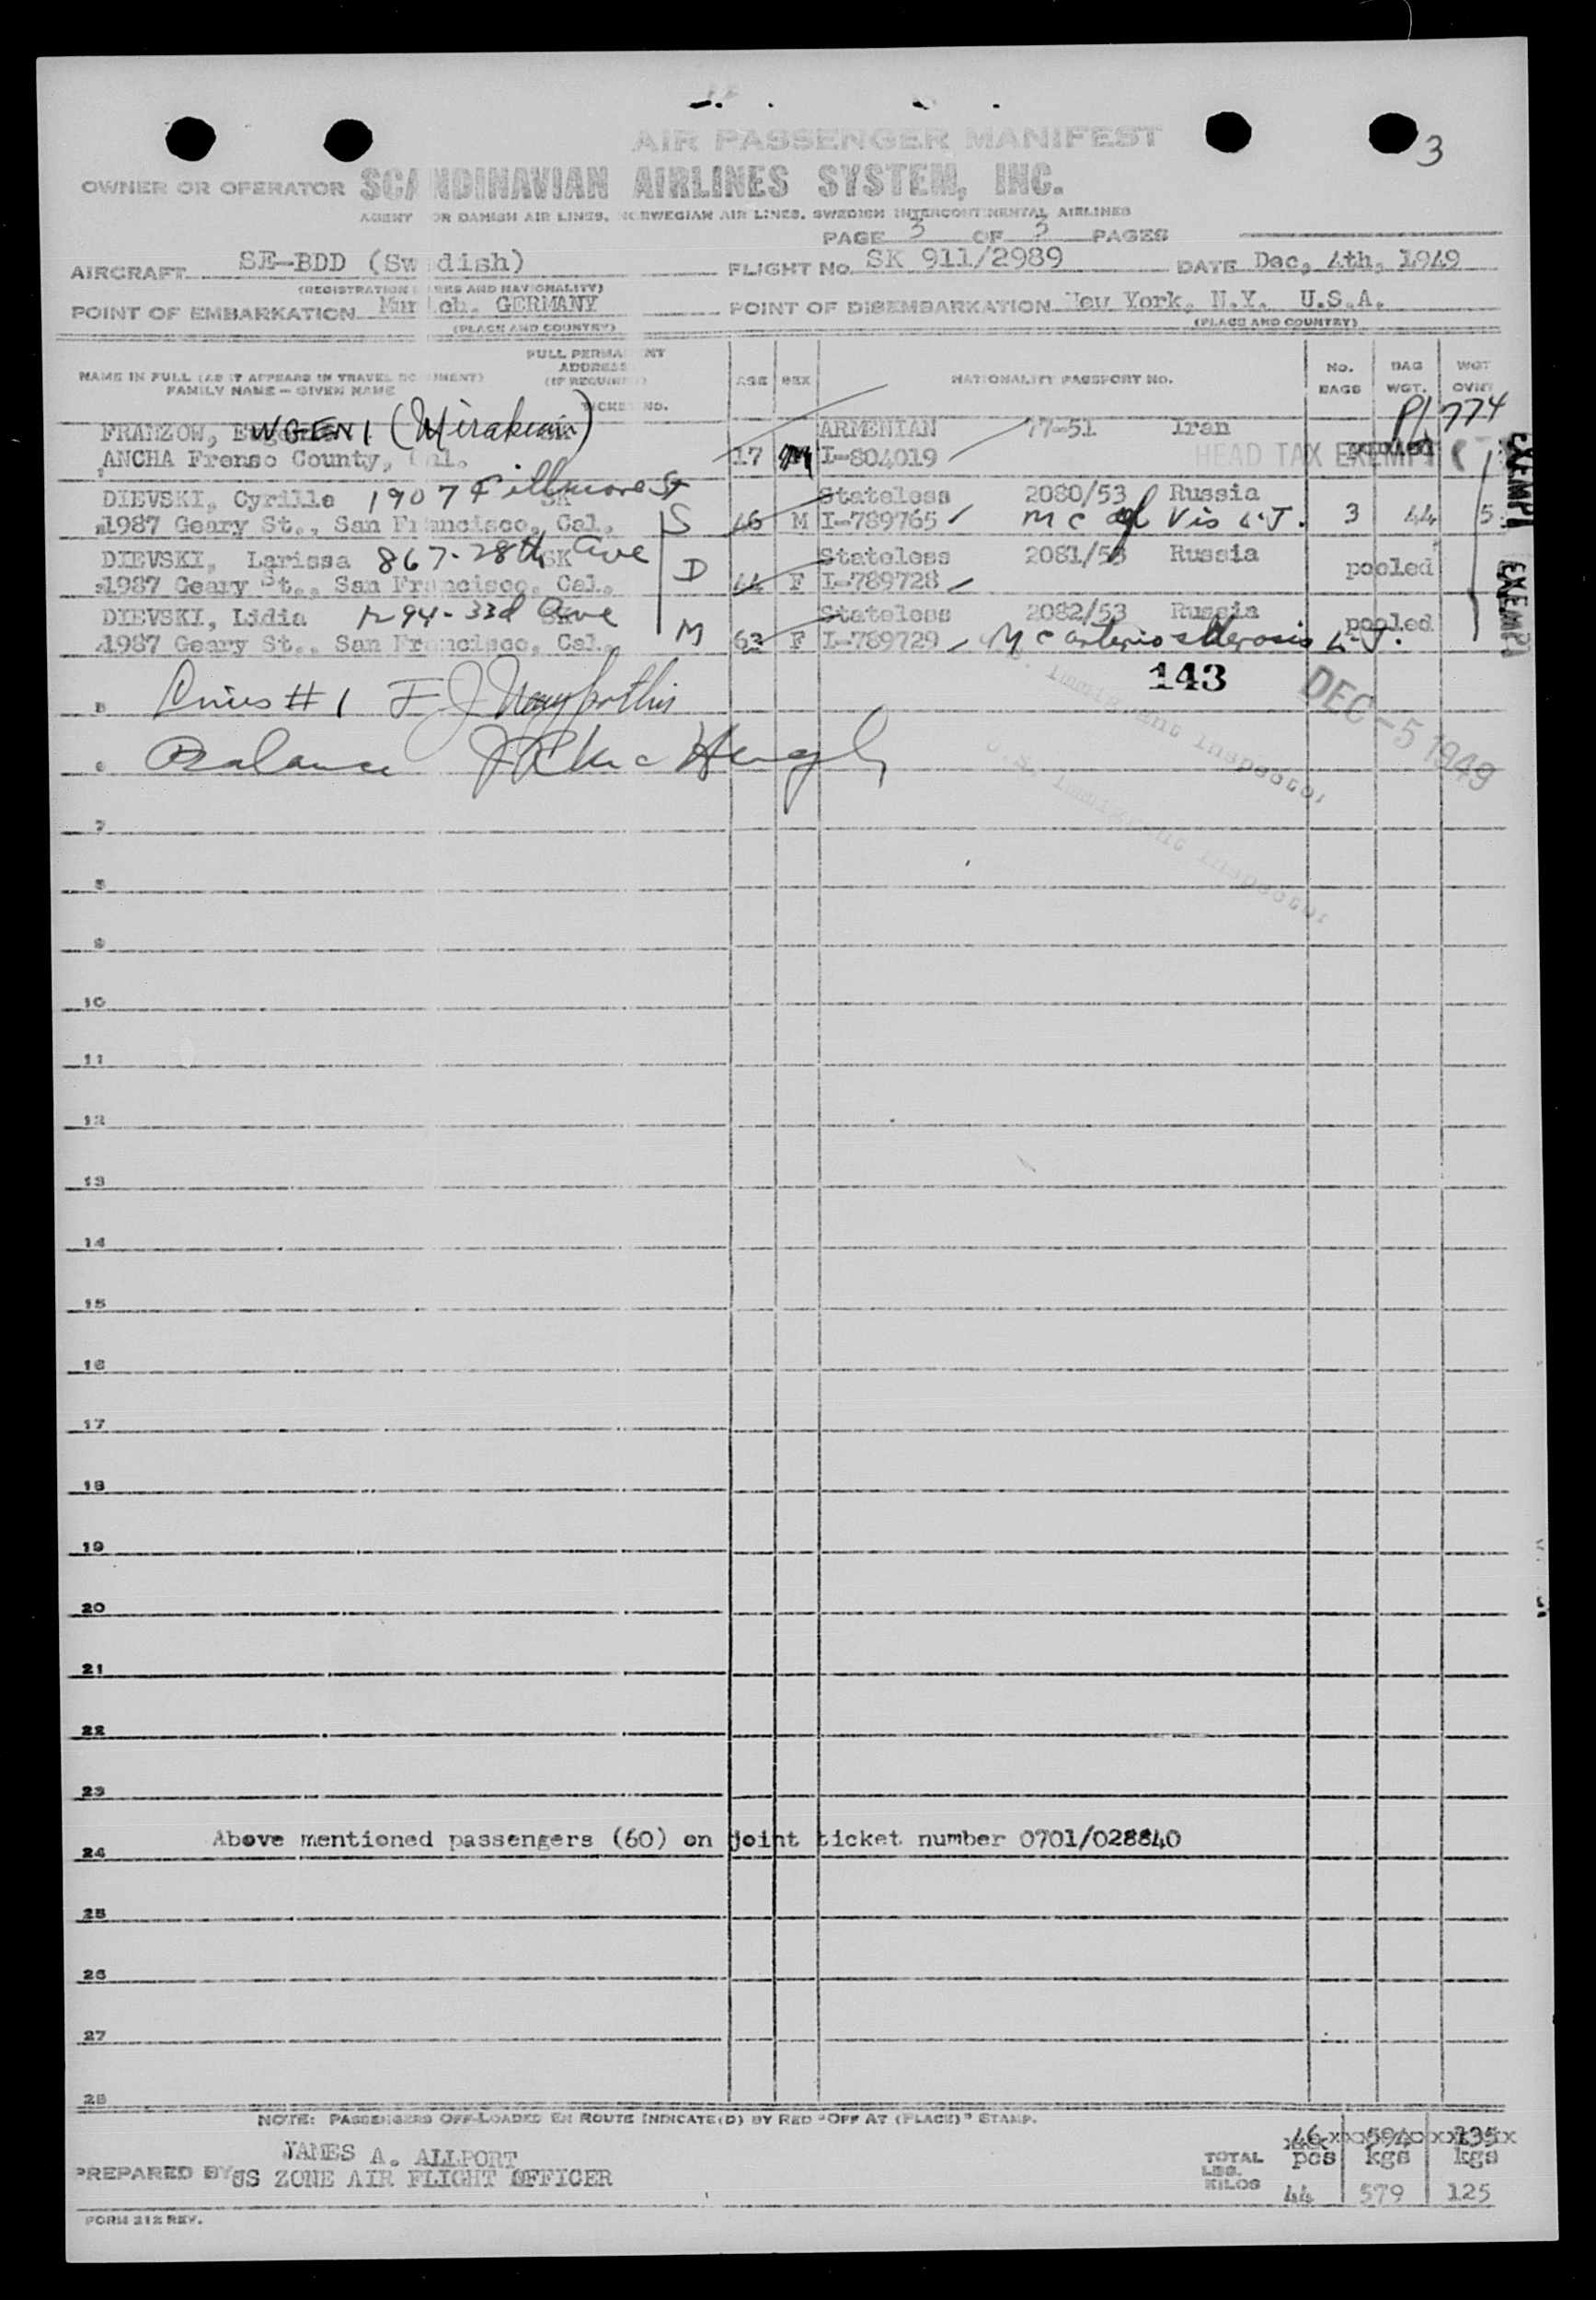 3
AIR PASSENGER MANIFEST
OWNER OR OPERATOR SCANDINAVIAN AIRLINES SYSTEM, INC.
AGENT FOR DANISH AIR LINES, NORWEGIAN AIR LINES, SWEDISH INTERCONTINENTAL AIRLINES
PAGE 3 OF 3 PAGES
AIRCRAFT SE-BDD (Swedish) FLIGHT No. SK 911/2989 DATE Dec, 4th, 1949
(REGISTRATION MARKS AND NATIONALITY)
POINT OF EMBARKATION Munich. GERMANY POINT OF DISEMBARKATION New York, N.Y. U.S.A.
(PLACE AND COUNTRY) (PLACE AND COUNTRY)
NAME IN FULL (AS IT APPEARS IN TRAVEL DOCUMENT) FAMILY NAME - GIVEN NAME FULL PERMANENT ADDRESS (IF REQUIRED) TICKET NO. AGE SEX NATIONALITY PASSPORT NO. No. BAGS BAG WGT. WGT OVHT
P/774
FRANZOW, WGENI (Mirakian) SK ARMENIAN 77-51 Iran
ANCHA Frenso County, Cal. 17 M I-804019 HEAD TAX EXEMPT pooled
DIEVSKI, Cyrille 1907 Fillmore St SK Stateless 2080/53 Russia
1987 Geary St., San Francisco, Cal. S 16 M I-789765 M C Vis L.J. 3 44 5
DIEVSKI, Larissa 867-28th Ave SK Stateless 2081/53 Russia
1987 Geary St., San Francisco, Cal. D 44 F I-789728 pooled
DIEVSKI, Lidia 1294-33d Ave Stateless 2082/53 Russia
1987 Geary St., San Francisco, Cal. M 63 F I-789729 M C arteriosclerosis L.J. pooled
EXEMPT
EXEMPT
143
DEC -5 1949
Immigrant Inspector
U.S. Immigrant Inspector
Lines # 1 F J
Balance
7
8
9
10
11
12
13
14
15
16
17
18
19
20
21
22
23
Above mentioned passengers (60) on joint ticket number 0701/028840
24
25
26
27
28
NOTE: PASSENGERS OFF-LOADED EN ROUTE INDICATE(D) BY RED "OFF AT (PLACE)" STAMP.
JAMES A. ALLPORT
PREPARED BY US ZONE AIR FLIGHT OFFICER
46 594 135
TOTAL LBS. KILOS pcs kgs kgs
44 579 125
FORM 212 REV.